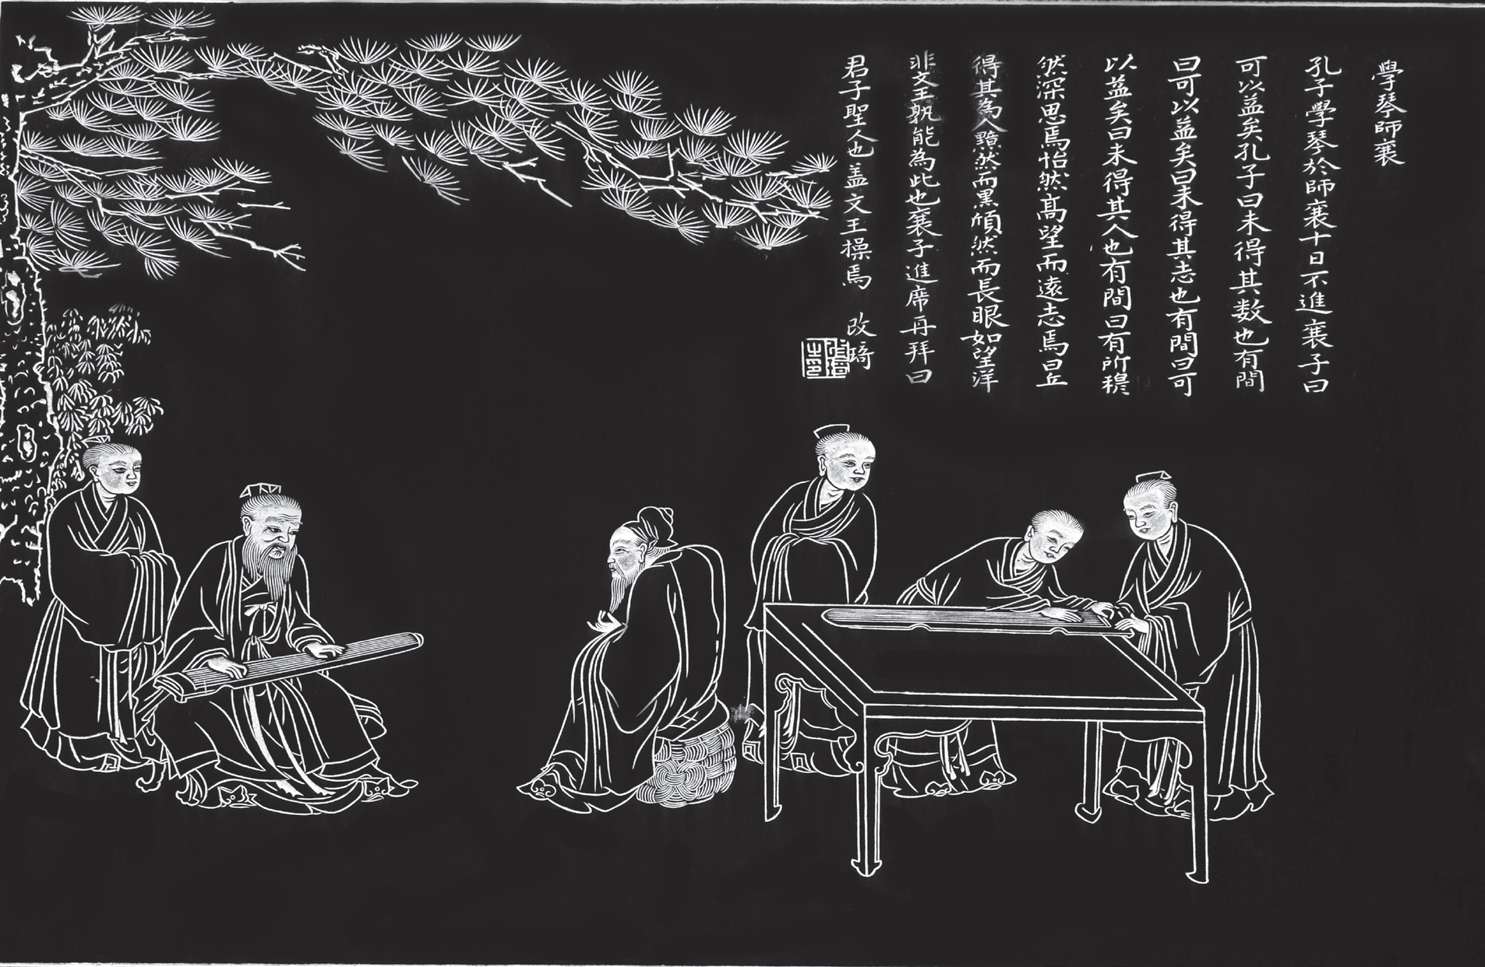 學琴師襄
孔子學琴於師襄十日不進襄子曰
可以益矣孔子曰未得其数也有間
曰可以益矣曰未得其志也有間曰可
以益矣曰未得其人也有間曰有所穆
然深思焉怡然髙望而遠志焉曰丘
得其為人黯然而黑頎然而長眼如望洋
非文王孰能為此也襄子進席再拜曰
君子聖人也盖文王操焉 改琦